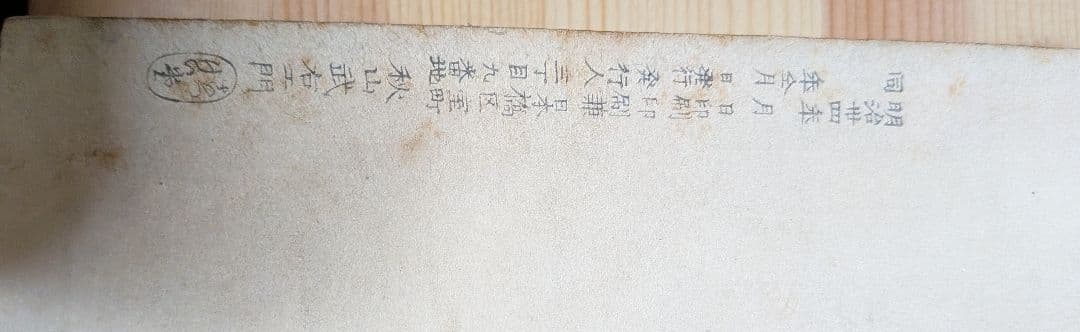 明治卅四年 月 日印刷
同 年仝月 日發行
印刷兼
発行人
日本橋区室町
三丁目九番地
秋山武右エ門